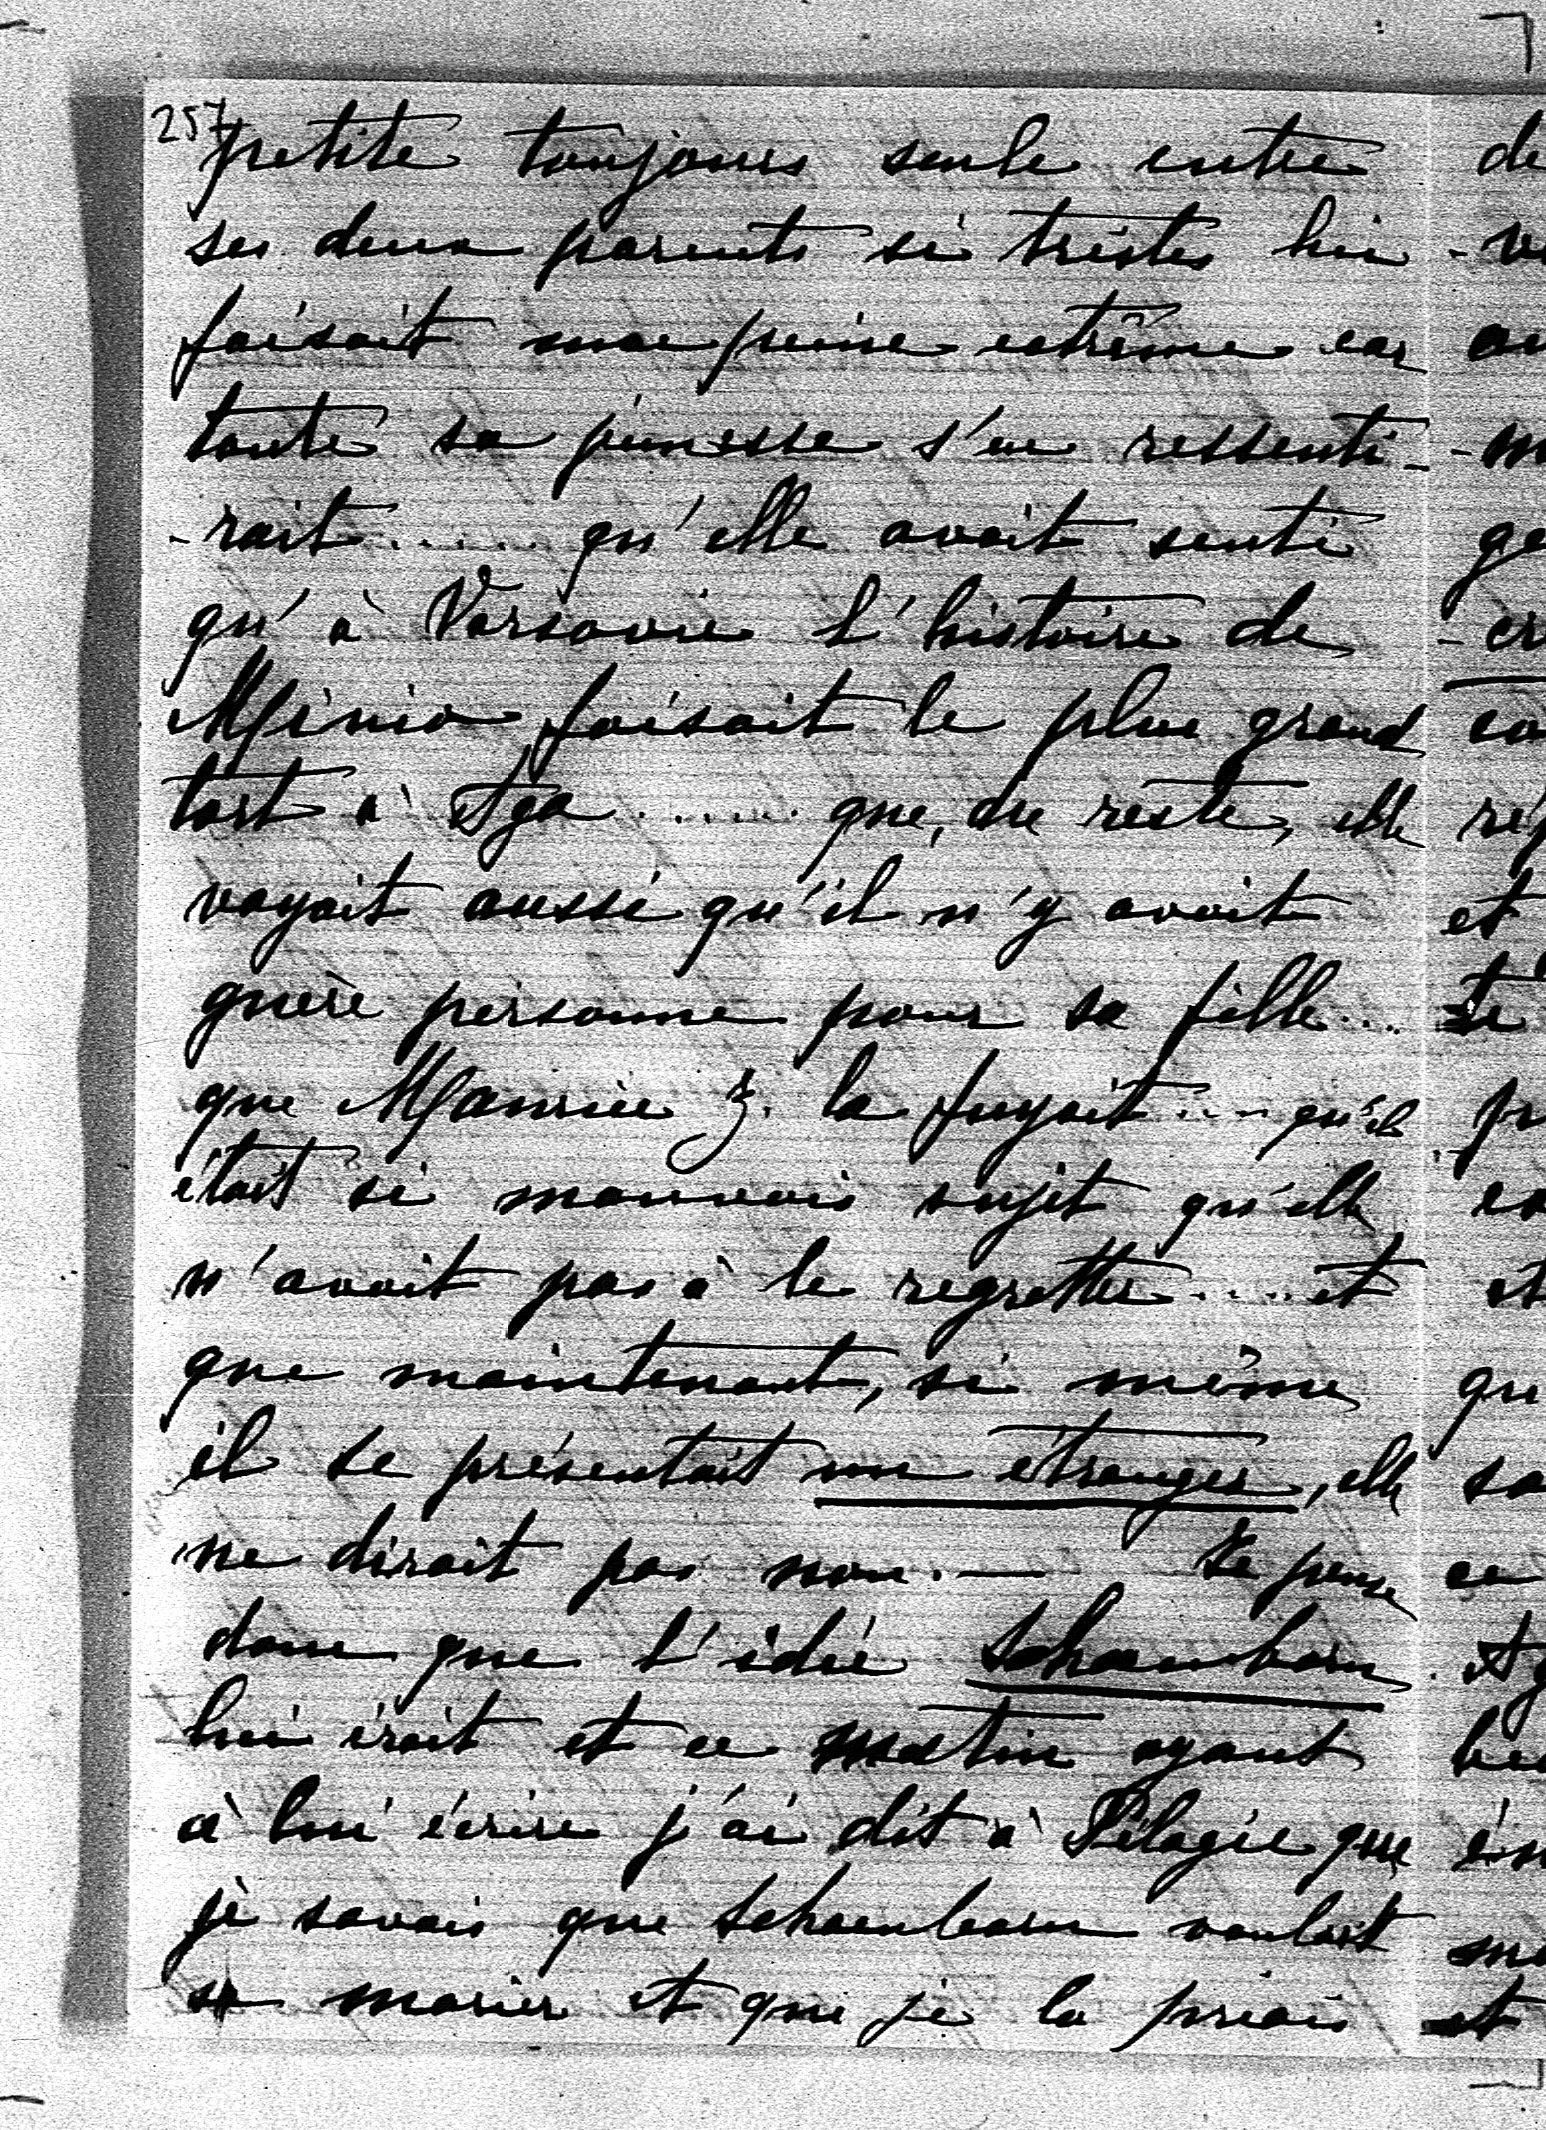 257
petite toujours seule entre
ses deux parents si tristes lui
faisait une peine extrême car
toute sa jeunesse s'en ressenti-
-rait ...... qu'elle avait senti
qu'à Varsovie l'histoire de
Minia faisait le plus grand
tort à Aga ...... que, du reste, elle
voyait aussi qu'il n'y avait
guère personne pour sa fille ...
que Maurice Z. la fuyait .... qu'il
était si mauvais sujet qu'elle
n'avait pas à le regretter ..... et
que maintenant, si même
il se présentait un étranger, elle
ne dirait pas non. — Je pense
donc que l'idée Schoenborn
lui irait et ce matin ayant
à lui écrire j'ai dit à Pélagie que
je savais que Schoenborn voulait
se marier et que je la priais